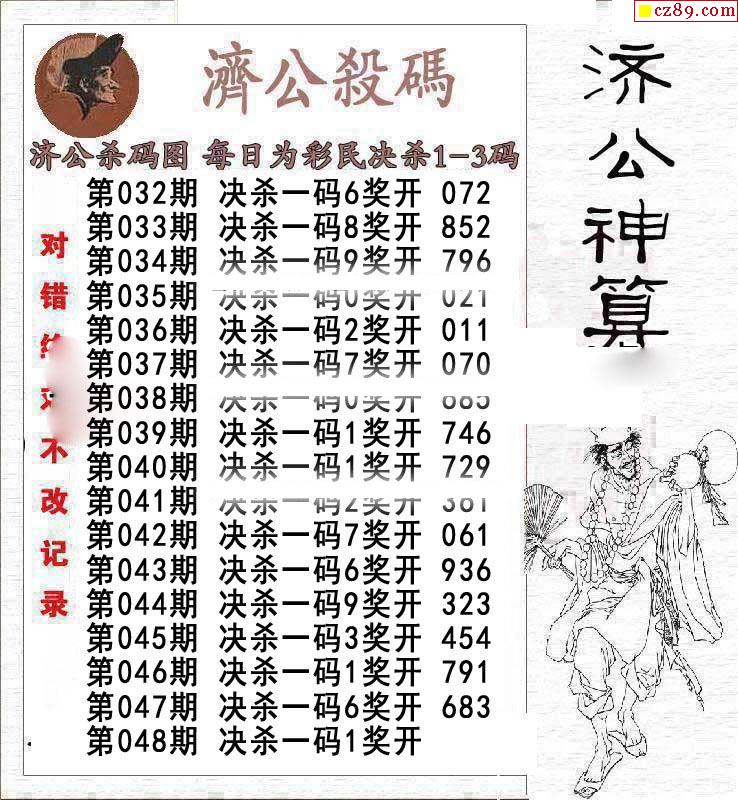 cz89.com
濟公殺碼
济公杀码图 每日为彩民决杀1-3码
第032期 决杀一码6奖开 072
第033期 决杀一码8奖开 852
第034期 决杀一码9奖开 796
第035期 决杀一码0奖开 021
第036期 决杀一码2奖开 011
第037期 决杀一码7奖开 070
第038期 决杀一码0奖开 685
第039期 决杀一码1奖开 746
第040期 决杀一码1奖开 729
第041期 决杀一码2奖开 361
第042期 决杀一码7奖开 061
第043期 决杀一码6奖开 936
第044期 决杀一码9奖开 323
第045期 决杀一码3奖开 454
第046期 决杀一码1奖开 791
第047期 决杀一码6奖开 683
第048期 决杀一码1奖开
对错 不改记录
济公神算